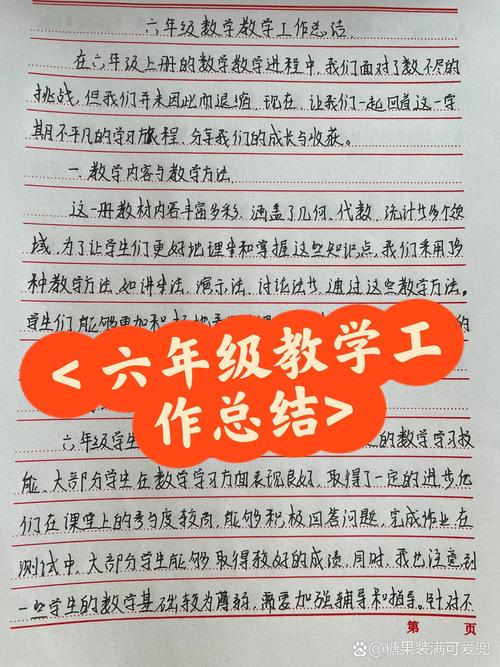 六年级数学教学工作总结
在六年级上册的数学教学进程中,我们面对了数不尽的
挑战,但我们并未因此而退缩。现在,让我们一起回首这一学
期不平凡的学习旅程,分享我们的成长与收获。
一、教学内容与教学方法
这一册教材内容丰富多彩,涵盖了几何、代数、统计等多个领
域,为了让学生们更好地理解和掌握这些知识点,我们采用了多
种教学方法,如讲解法、演示法、讨论法等,通过这些教学方法。
学生们能够更加积极地
的
<六年级教学工
作总结>
六年级学生
的数学学习技
能、大部分学生在数学学习方面表现良好,取得了一定的进步他
们在课堂上的参与度较高,能够积极回答问题,完成作业在
测试中,大部分学生能够取得较好的成绩,同时,我也注意到
一些学生的数学基础较为薄弱,需要加强辅导和指导。针对不
第 页
@糖果装满可爱兜